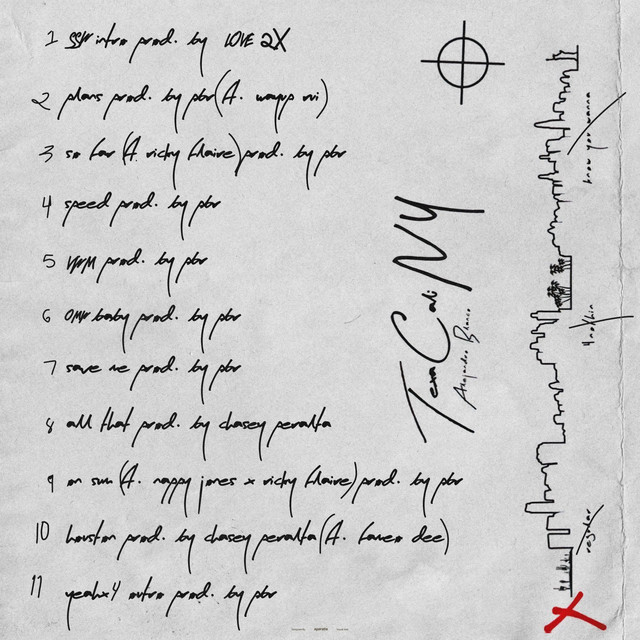 1 ssw intro prod. by LOVE 2X
2 plans prod. by pbr (ft. wayup vvi)
3 so far (ft. vicky hilaire) prod. by pbr
4 speed prod. by pbr
5 prod. by pbr
6 OMW baby prod. by pbr
7 save me prod. by pbr
8 all that prod. by chasey peralta
9 on sum (ft. nappy jones x vicky hilaire) prod. by pbr
10 houston prod. by chasey peralta (ft. dee)
11 yeahx4 outro prod. by pbr
TexaCali NY
Alejandro Blanco
know you wanna